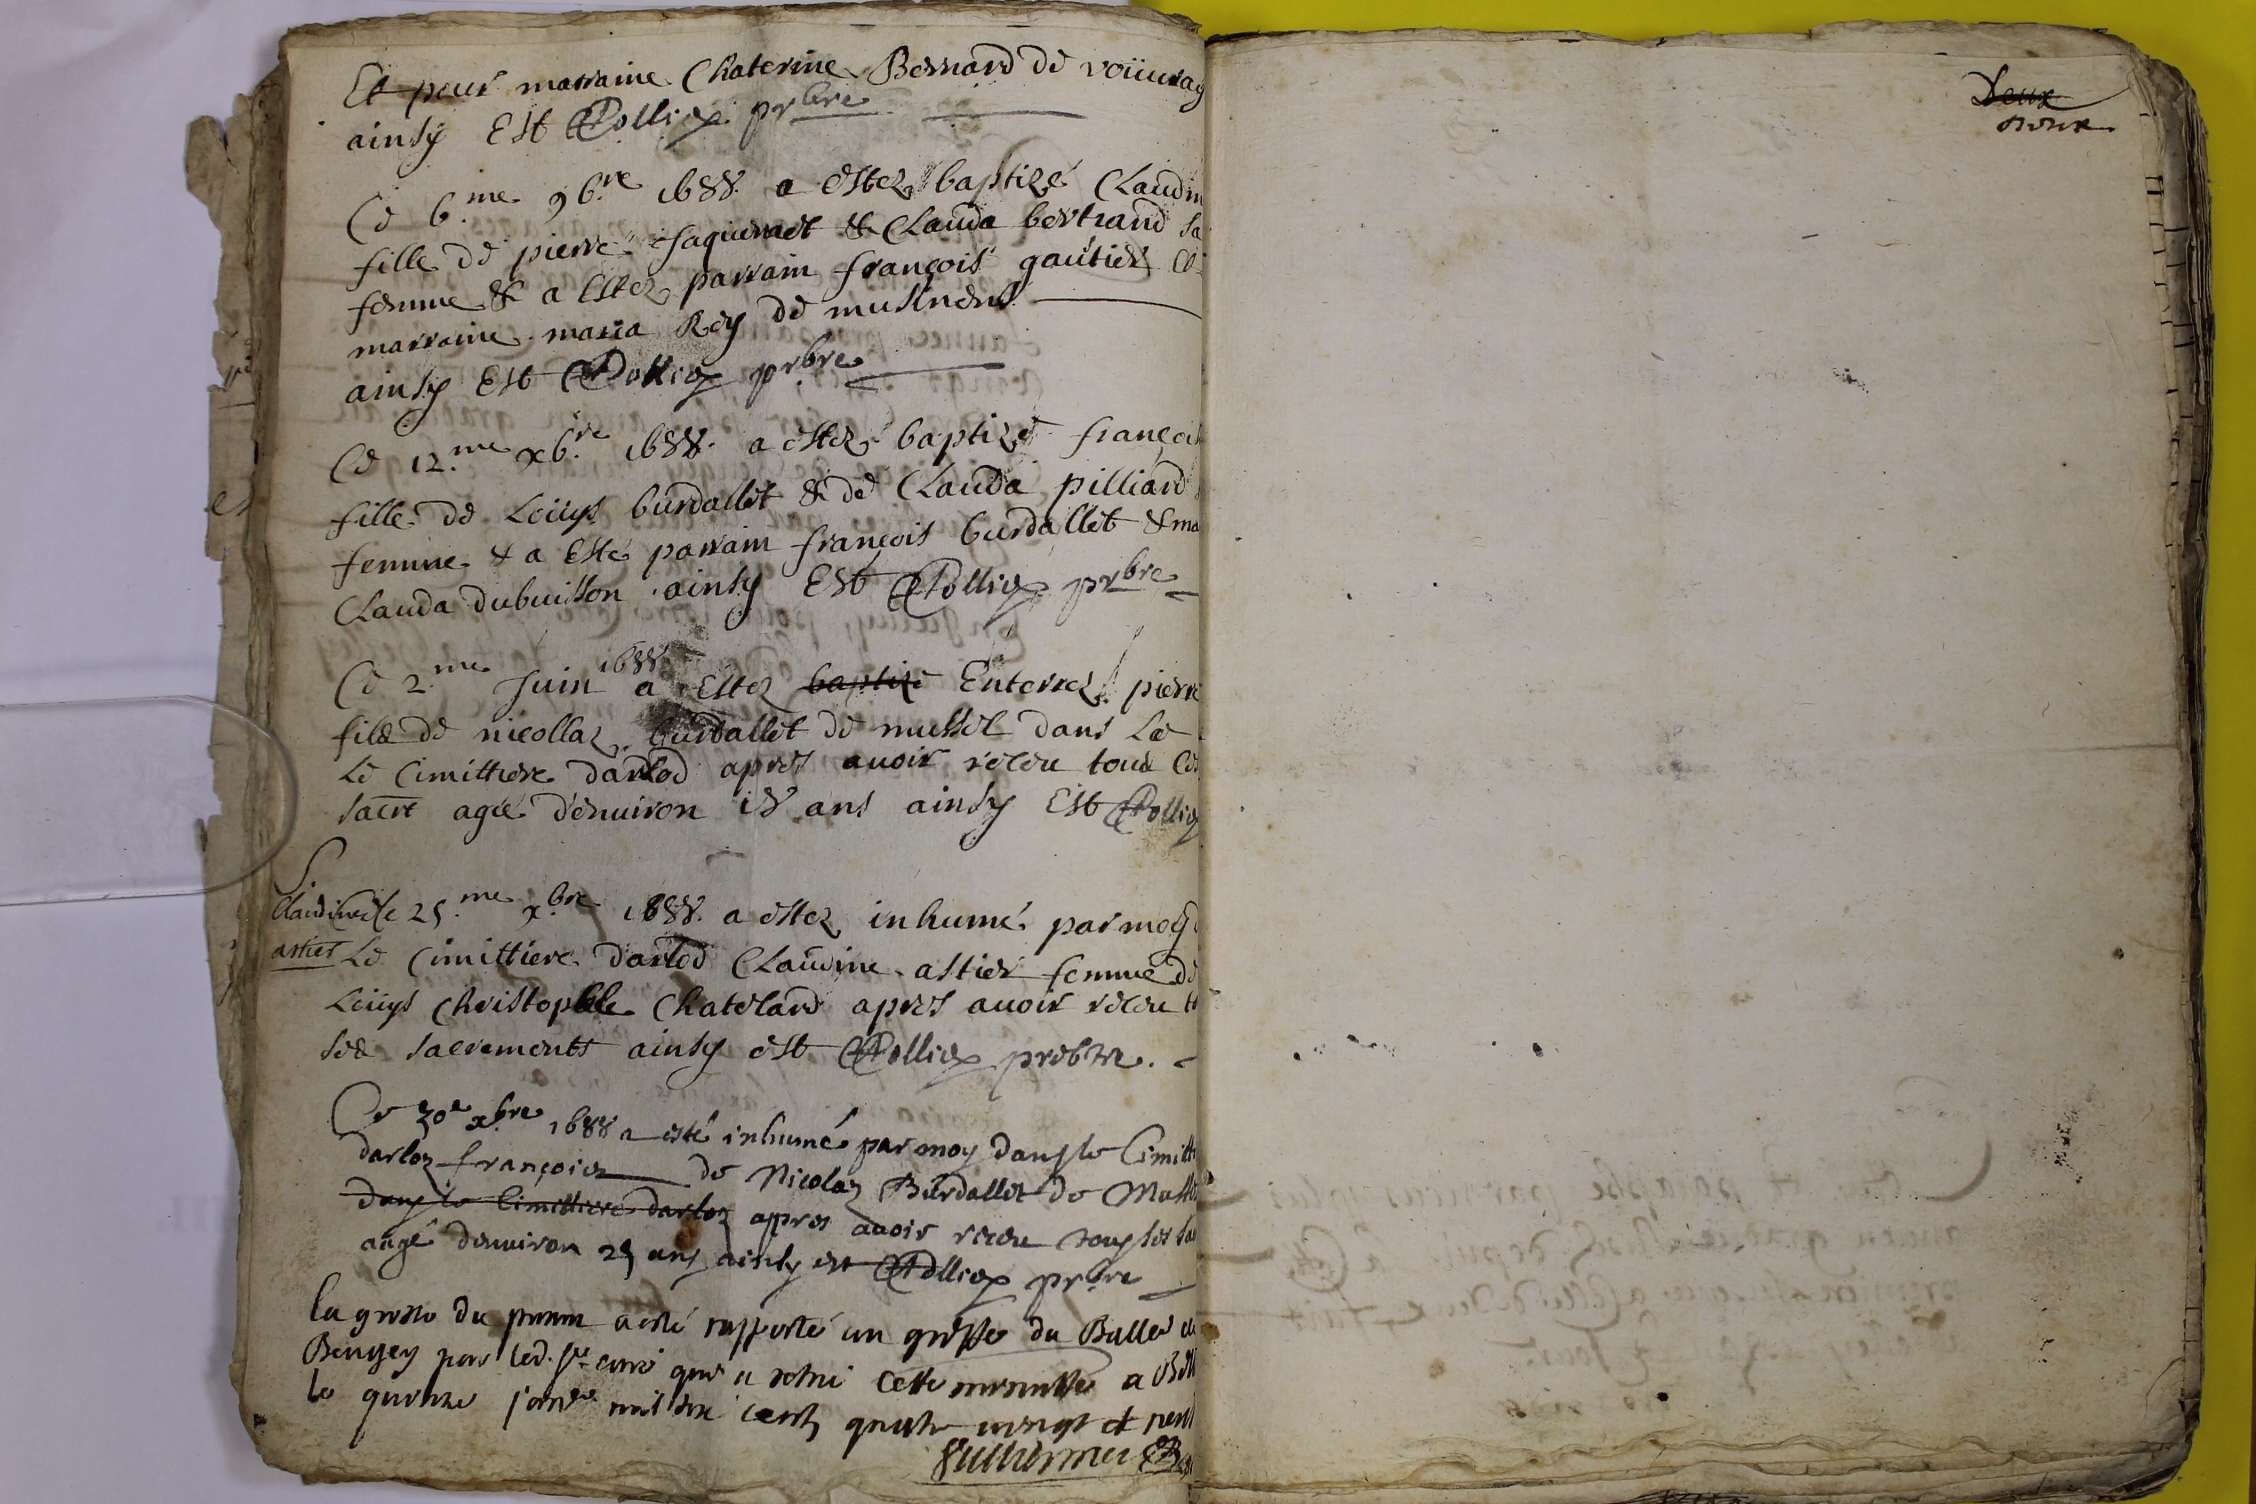 Et pour marraine Chaterine Bernard de voüuray
ainsy Est Pollier prbre
Ce 6.me 9b.re 1688. a estez baptizé Claudin
fille de pierre Jaquemet & Clauda bertrand sa
femme & a Estez parrain françois gautier et
marraine maria Rey de musinens
ainsy Est Pollier prbre
Ce 12.me xb.re 1688. a estez baptizé françois
fille de Loüys burdallet & de Clauda pilliard
femme & a Esté parrain françois burdallet & ma
Clauda dubuisson ainsy Est Pollier prbre
Ce 2.me Juin 1688 a Estez baptizé Enterrez pierre
fils de nicollaz burdallet de mussel dans Le
Le Cimittiere darlod apres avoir receu tous Ces
sacrt agée d'environ 18 ans ainsy Est Pollier
Claudine
astier
Ce 25.me xbre 1688. a estez inhumé par moy
Le Cimittiere darlod Claudine astier femme de
Loüys Christophle Chatelard apres avoir receu t
ses sacrements ainsy est Pollier prebtre.
Ce 30e xbre 1688 a esté inhumé par moy dans le Cimitt
darloz françois de Nicolaz Burdallet de Muss
dans le Cimittiere darloz appres avoir receu tous les sa
augé denviron 25 ans ainsy est Pollier prbre
la grosse du prnt a esté rapporté au greffe du Balle
Beugey par led. sr curé qui a retiré cette minutte a Bell
le quinze janvr mil six cent quatre vingt et neuf
Deux